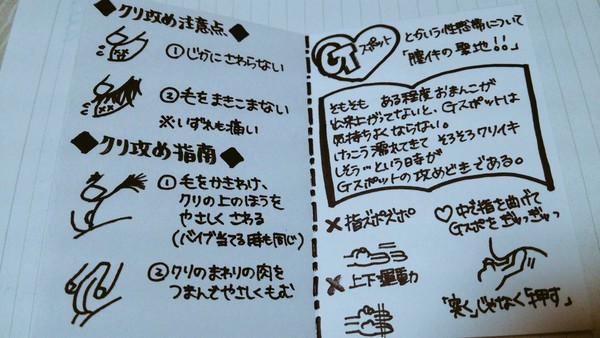 ◆クリ攻め注意点◆
①じかにさわらない
②毛をまきこまない
※いずれも痛い
◆クリ攻め指南◆
①毛をかきわけ、
クリの上のほうを
やさしくさわる
(バイブ当てる時も同じ)
②クリのまわりの肉を
つまんでやさしくもむ
Gスポット
とかいう性感帯について
「膣件の聖地!!」
そもそも ある程度おまんこが
出来上がってないと、Gスポットは
気持ちよくならない。
けっこう濡れてきて そろそろクリイキ
しそう…という時が
Gスポットの攻めどきである。
×指ズボズボ
×上下運動
♡中で指を曲げて
Gスポをギュッギュッ
「突く」じゃなく「押す」